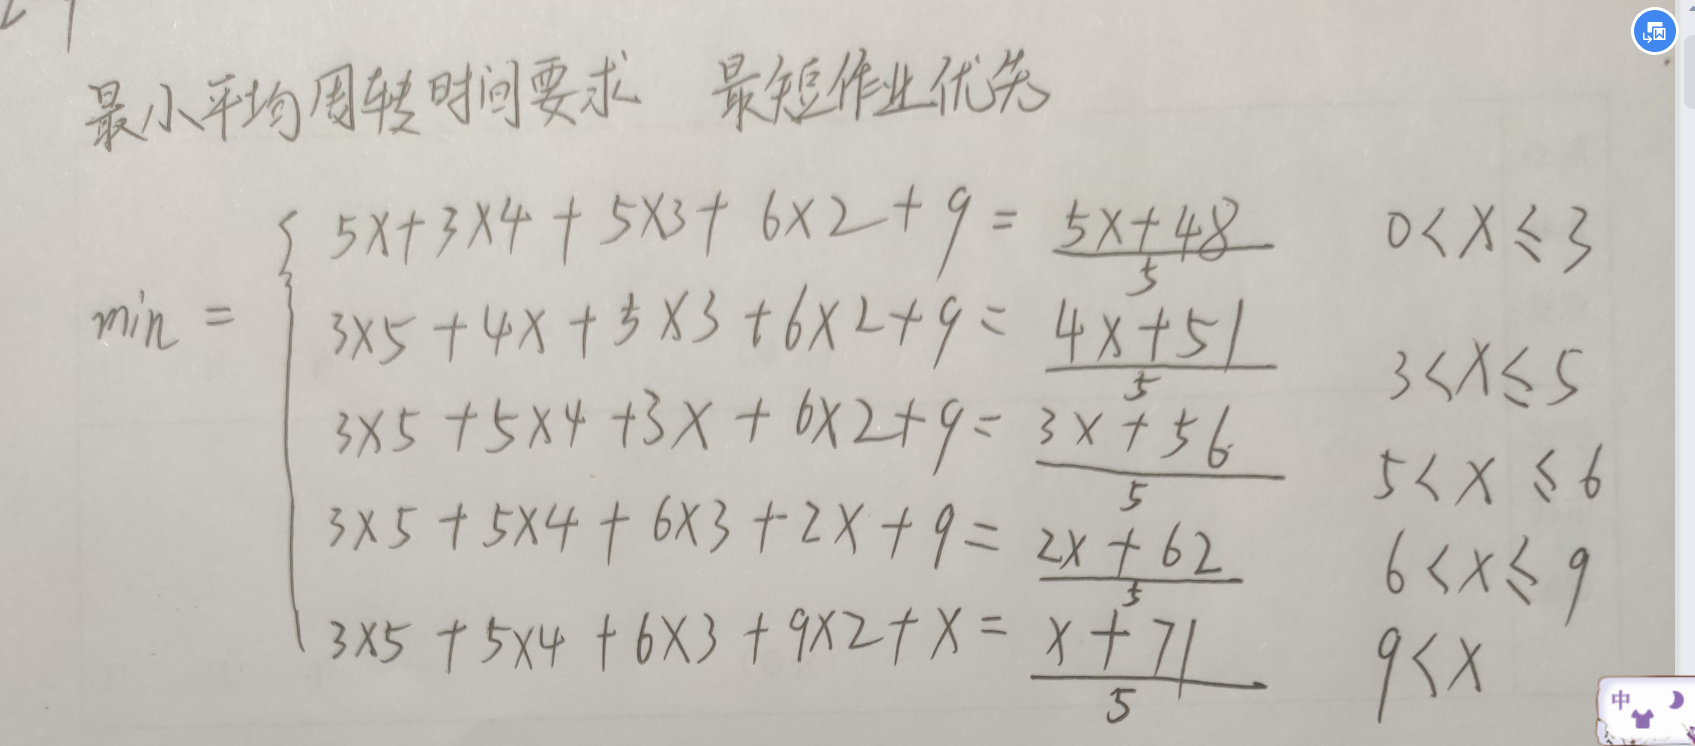 最小平均周转时间要求 最短作业优先
5x+3×4+5×3+6×2+9= 5x+48 0<x≤3
5
min = 3×5+4x+5×3+6×2+9= 4x+51 3<x≤5
5
3×5+5×4+3x+6×2+9= 3x+56 5<x≤6
5
3×5+5×4+6×3+2x+9= 2x+62 6<x≤9
5
3×5+5×4+6×3+9×2+x= x+71 9<x
5
中